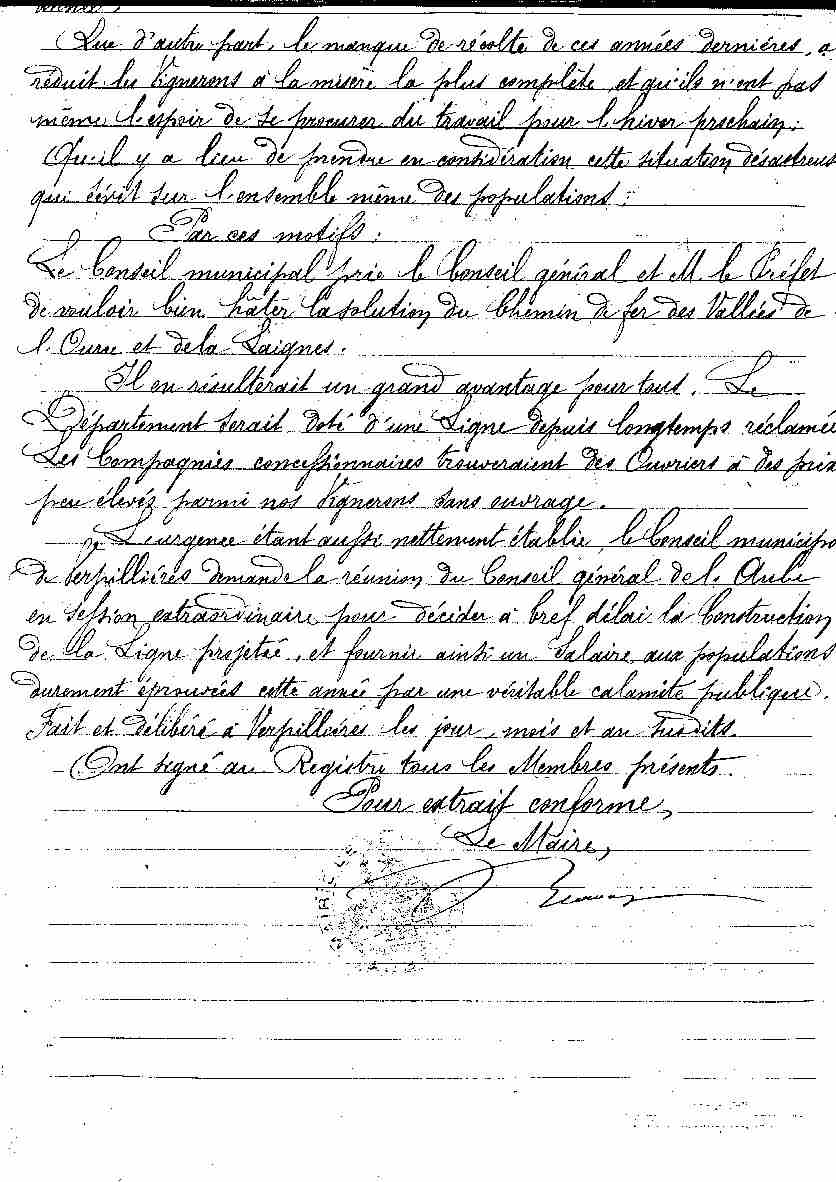 Que d'autre part, le manque de récolte de ces années dernières, a
réduit les Vignerons à la misère la plus complète, et qu'ils n'ont pas
même l'espoir de se procurer du travail pour l'hiver prochain;
Qu'il y a lieu de prendre en considération cette situation désastreus
qui sévit sur l'ensemble même des populations;
Par ces motifs:
Le Conseil municipal prie le Conseil général et M. le Préfet
de vouloir bien hâter la solution du Chemin de fer des Vallées de
l'Ource et de la Laignes.
Il en résulterait un grand avantage pour tous. Le
Département serait doté d'une Ligne depuis longtemps réclamée
Les Compagnies concessionnaires trouveraient des Ouvriers à des prix
peu élevés parmi nos Vignerons sans ouvrage.
L'urgence étant aussi nettement établie, le Conseil municipa
de Verpillières demande la réunion du Conseil général de l'Aube
en session extraordinaire pour décider à bref délai la Construction
de la Ligne projetée, et fournir ainsi un Salaire aux populations
durement éprouvées cette année par une véritable calamité publique.
Fait et délibéré à Verpillières les jour, mois et an susdits.
Ont signé au Registre tous les Membres présents.
Pour extrait conforme,
Le Maire,
MAIRIE DE